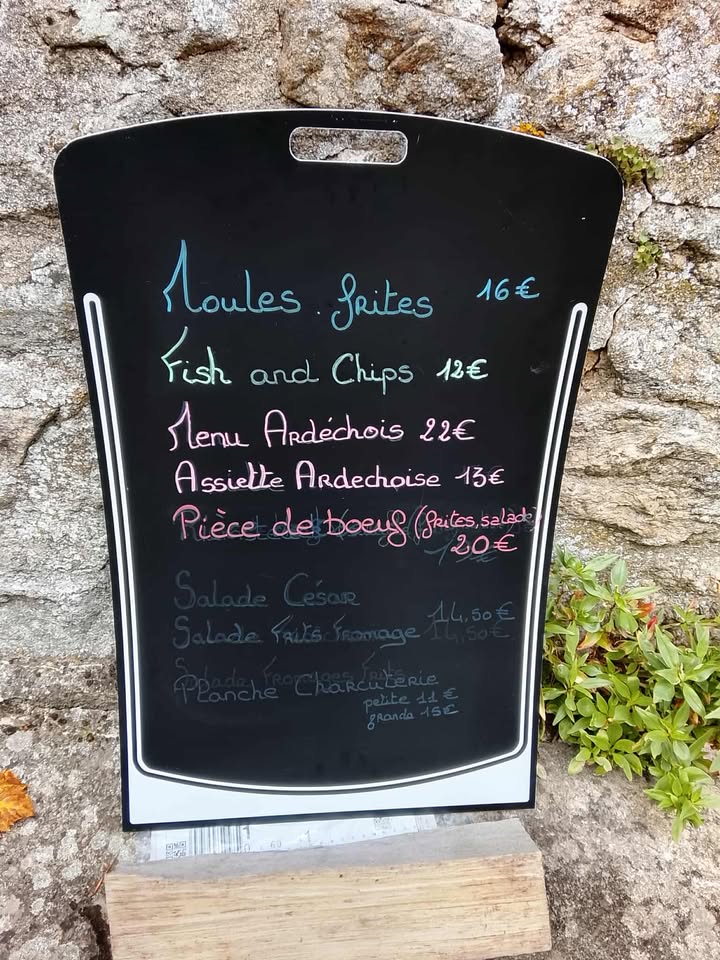 Moules . frites 16€
Fish and Chips 12€
Menu Ardéchois 22€
Assiette Ardechoise 13€
Pièce de boeuf (frites, salade)
20€
Salade César
14,50€
Salade Frits Fromage 14,50€
Salade Fromages Frits
Planche Charcuterie
petite 11€
grande 15€